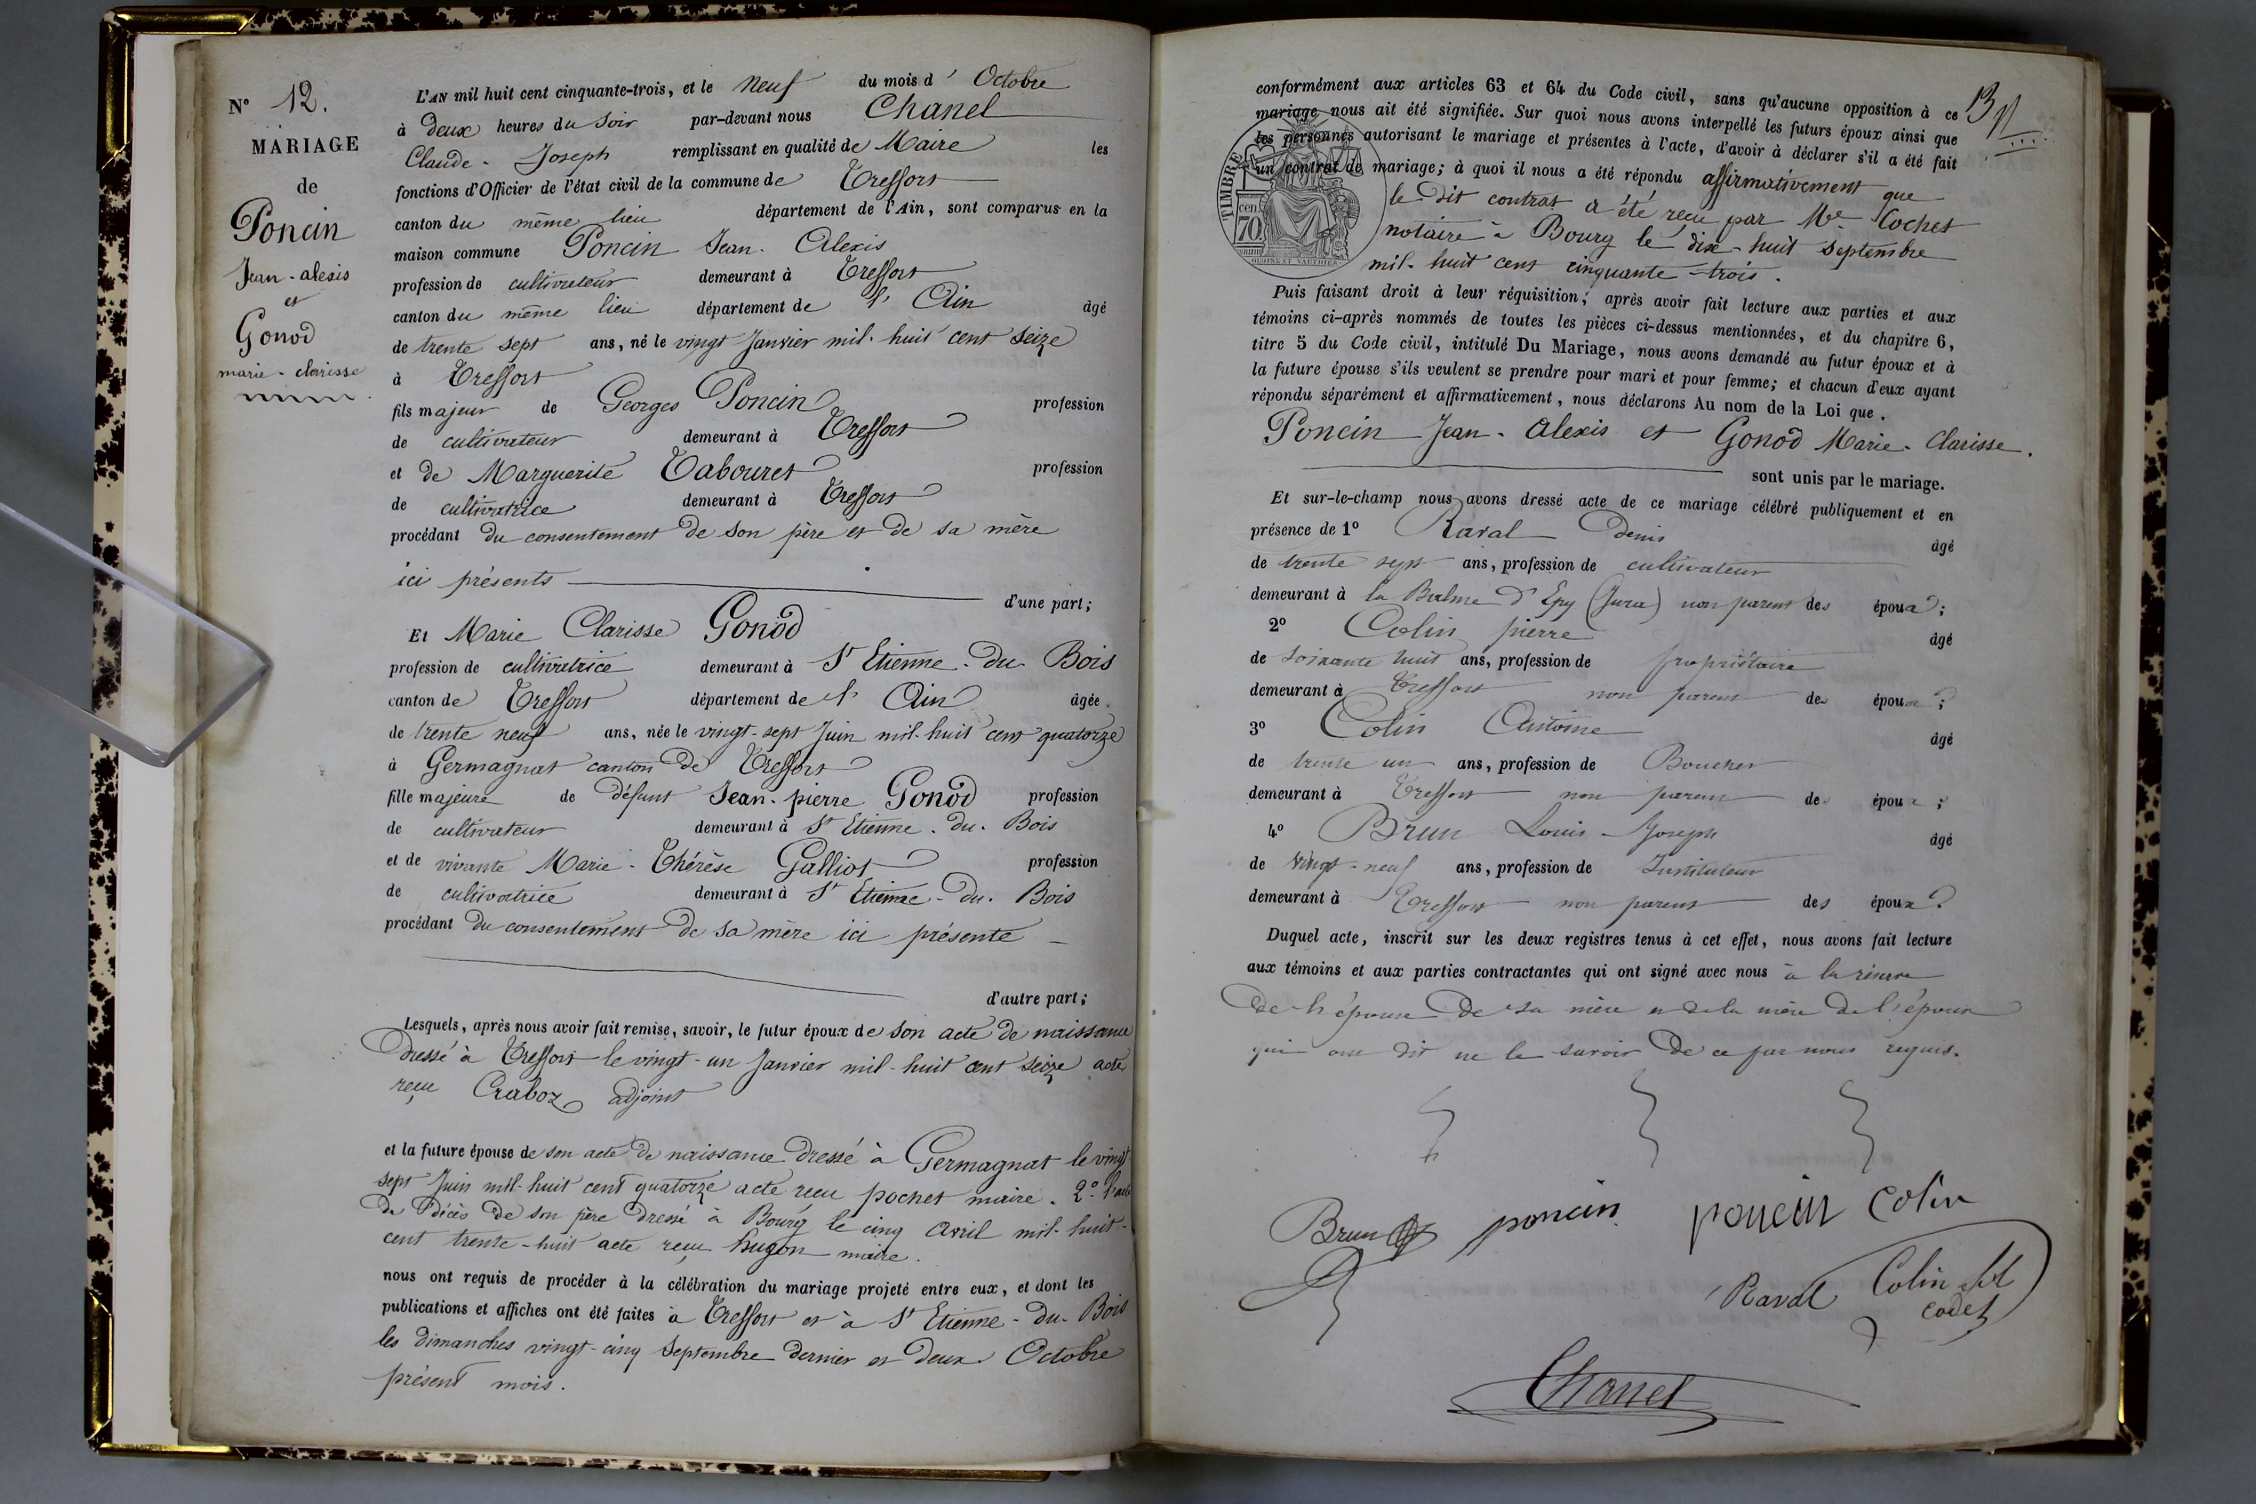 N° 12.
MARIAGE
de
Poncin
Jean-alexis
et
Gonod
marie-clarisse
L'AN mil huit cent cinquante-trois, et le neuf du mois d'Octobre
à deux heures du soir par-devant nous Chanel
Claude-Joseph remplissant en qualité de Maire les
fonctions d'Officier de l'état civil de la commune de Treffort
canton du même lieu département de l'Ain, sont comparus en la
maison commune Poncin Jean-Alexis
profession de cultivateur demeurant à Treffort
canton du même lieu département de l'Ain âgé
de trente sept ans, né le vingt Janvier mil-huit cent seize
à Treffort
fils majeur de Georges Poncin profession
de cultivateur demeurant à Treffort
et de Marguerite Tabouret profession
de cultivatrice demeurant à Treffort
procédant du consentement de son père et de sa mère
ici présents
d'une part;
Et Marie Clarisse Gonod
profession de cultivatrice demeurant à St Etienne-du-Bois
canton de Treffort département de l'Ain âgée
de trente neuf ans, née le vingt-sept Juin mil-huit cent quatorze
à Germagnat canton de Treffort
fille majeure de défunt Jean-pierre Gonod profession
de cultivateur demeurant à St Etienne-du-Bois
et de vivante Marie-Thérèse Galliot profession
de cultivatrice demeurant à St Etienne-du-Bois
procédant du consentement de sa mère ici présente
d'autre part;
Lesquels, après nous avoir fait remise, savoir, le futur époux de son acte de naissance
dressé à Treffort le vingt-un Janvier mil-huit cent seize acte
reçu Craboz adjoint
et la future épouse de son acte de naissance dressé à Germagnat le vingt
sept Juin mil-huit cent quatorze acte reçu pochet maire. 2° l'acte
de décès de son père dressé à Bourg le cinq avril mil-huit-
cent trente-huit acte reçu hugon maire.
nous ont requis de procéder à la célébration du mariage projeté entre eux, et dont les
publications et affiches ont été faites à Treffort et à St Etienne-du-Bois
les dimanches vingt-cinq Septembre dernier et deux Octobre
présent mois.
13
conformément aux articles 63 et 64 du Code civil, sans qu'aucune opposition à ce
mariage nous ait été signifiée. Sur quoi nous avons interpellé les futurs époux ainsi que
les personnes autorisant le mariage et présentes à l'acte, d'avoir à déclarer s'il a été fait
un contrat de mariage; à quoi il nous a été répondu affirmativement que
TIMBRE
70
le dit contrat a été reçu par Me Cochet
notaire à Bourg le dix-huit Septembre
mil-huit cent cinquante-trois.
Puis faisant droit à leur réquisition, après avoir fait lecture aux parties et aux
témoins ci-après nommés de toutes les pièces ci-dessus mentionnées, et du chapitre 6,
titre 5 du Code civil, intitulé Du Mariage, nous avons demandé au futur époux et à
la future épouse s'ils veulent se prendre pour mari et pour femme; et chacun d'eux ayant
répondu séparément et affirmativement, nous déclarons Au nom de la Loi que.
Poncin Jean-Alexis et Gonod Marie-Clarisse.
sont unis par le mariage.
Et sur-le-champ nous avons dressé acte de ce mariage célébré publiquement et en
présence de 1° Raval Denis âgé
de trente sept ans, profession de cultivateur
demeurant à la Balme d'Epy (Jura) non parent des époux;
2° Colin pierre âgé
de soixante huit ans, profession de propriétaire
demeurant à Treffort non parent des époux;
3° Colin Antoine âgé
de trente un ans, profession de Boucher
demeurant à Treffort non parent des époux;
4° Brun Louis-Joseph âgé
de vingt-neuf ans, profession de Instituteur
demeurant à Treffort non parent des époux
Duquel acte, inscrit sur les deux registres tenus à cet effet, nous avons fait lecture
aux témoins et aux parties contractantes qui ont signé avec nous à la réserve
de l'épouse de sa mère et de la mère de l'époux
qui ont dit ne le savoir de ce par nous requis.
Brun poncin poncin Colin
Raval Colin
cadet
Chanel